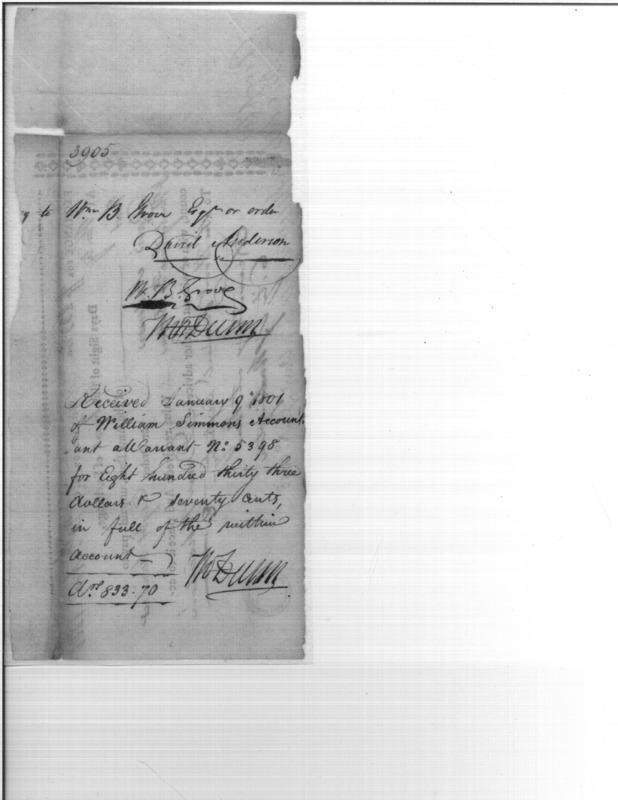 3905
y to Wm B. Grove Esqr or order
David Anderson
Wm. B. Grove
Thos Dunn
Received January 9th 1801
of William Simmons Account
ant a Warrant No. 5398
for Eight hundred thirty three
dollars & seventy Cents,
in full of the within
Account
Drs 833.70
Thos Dunn